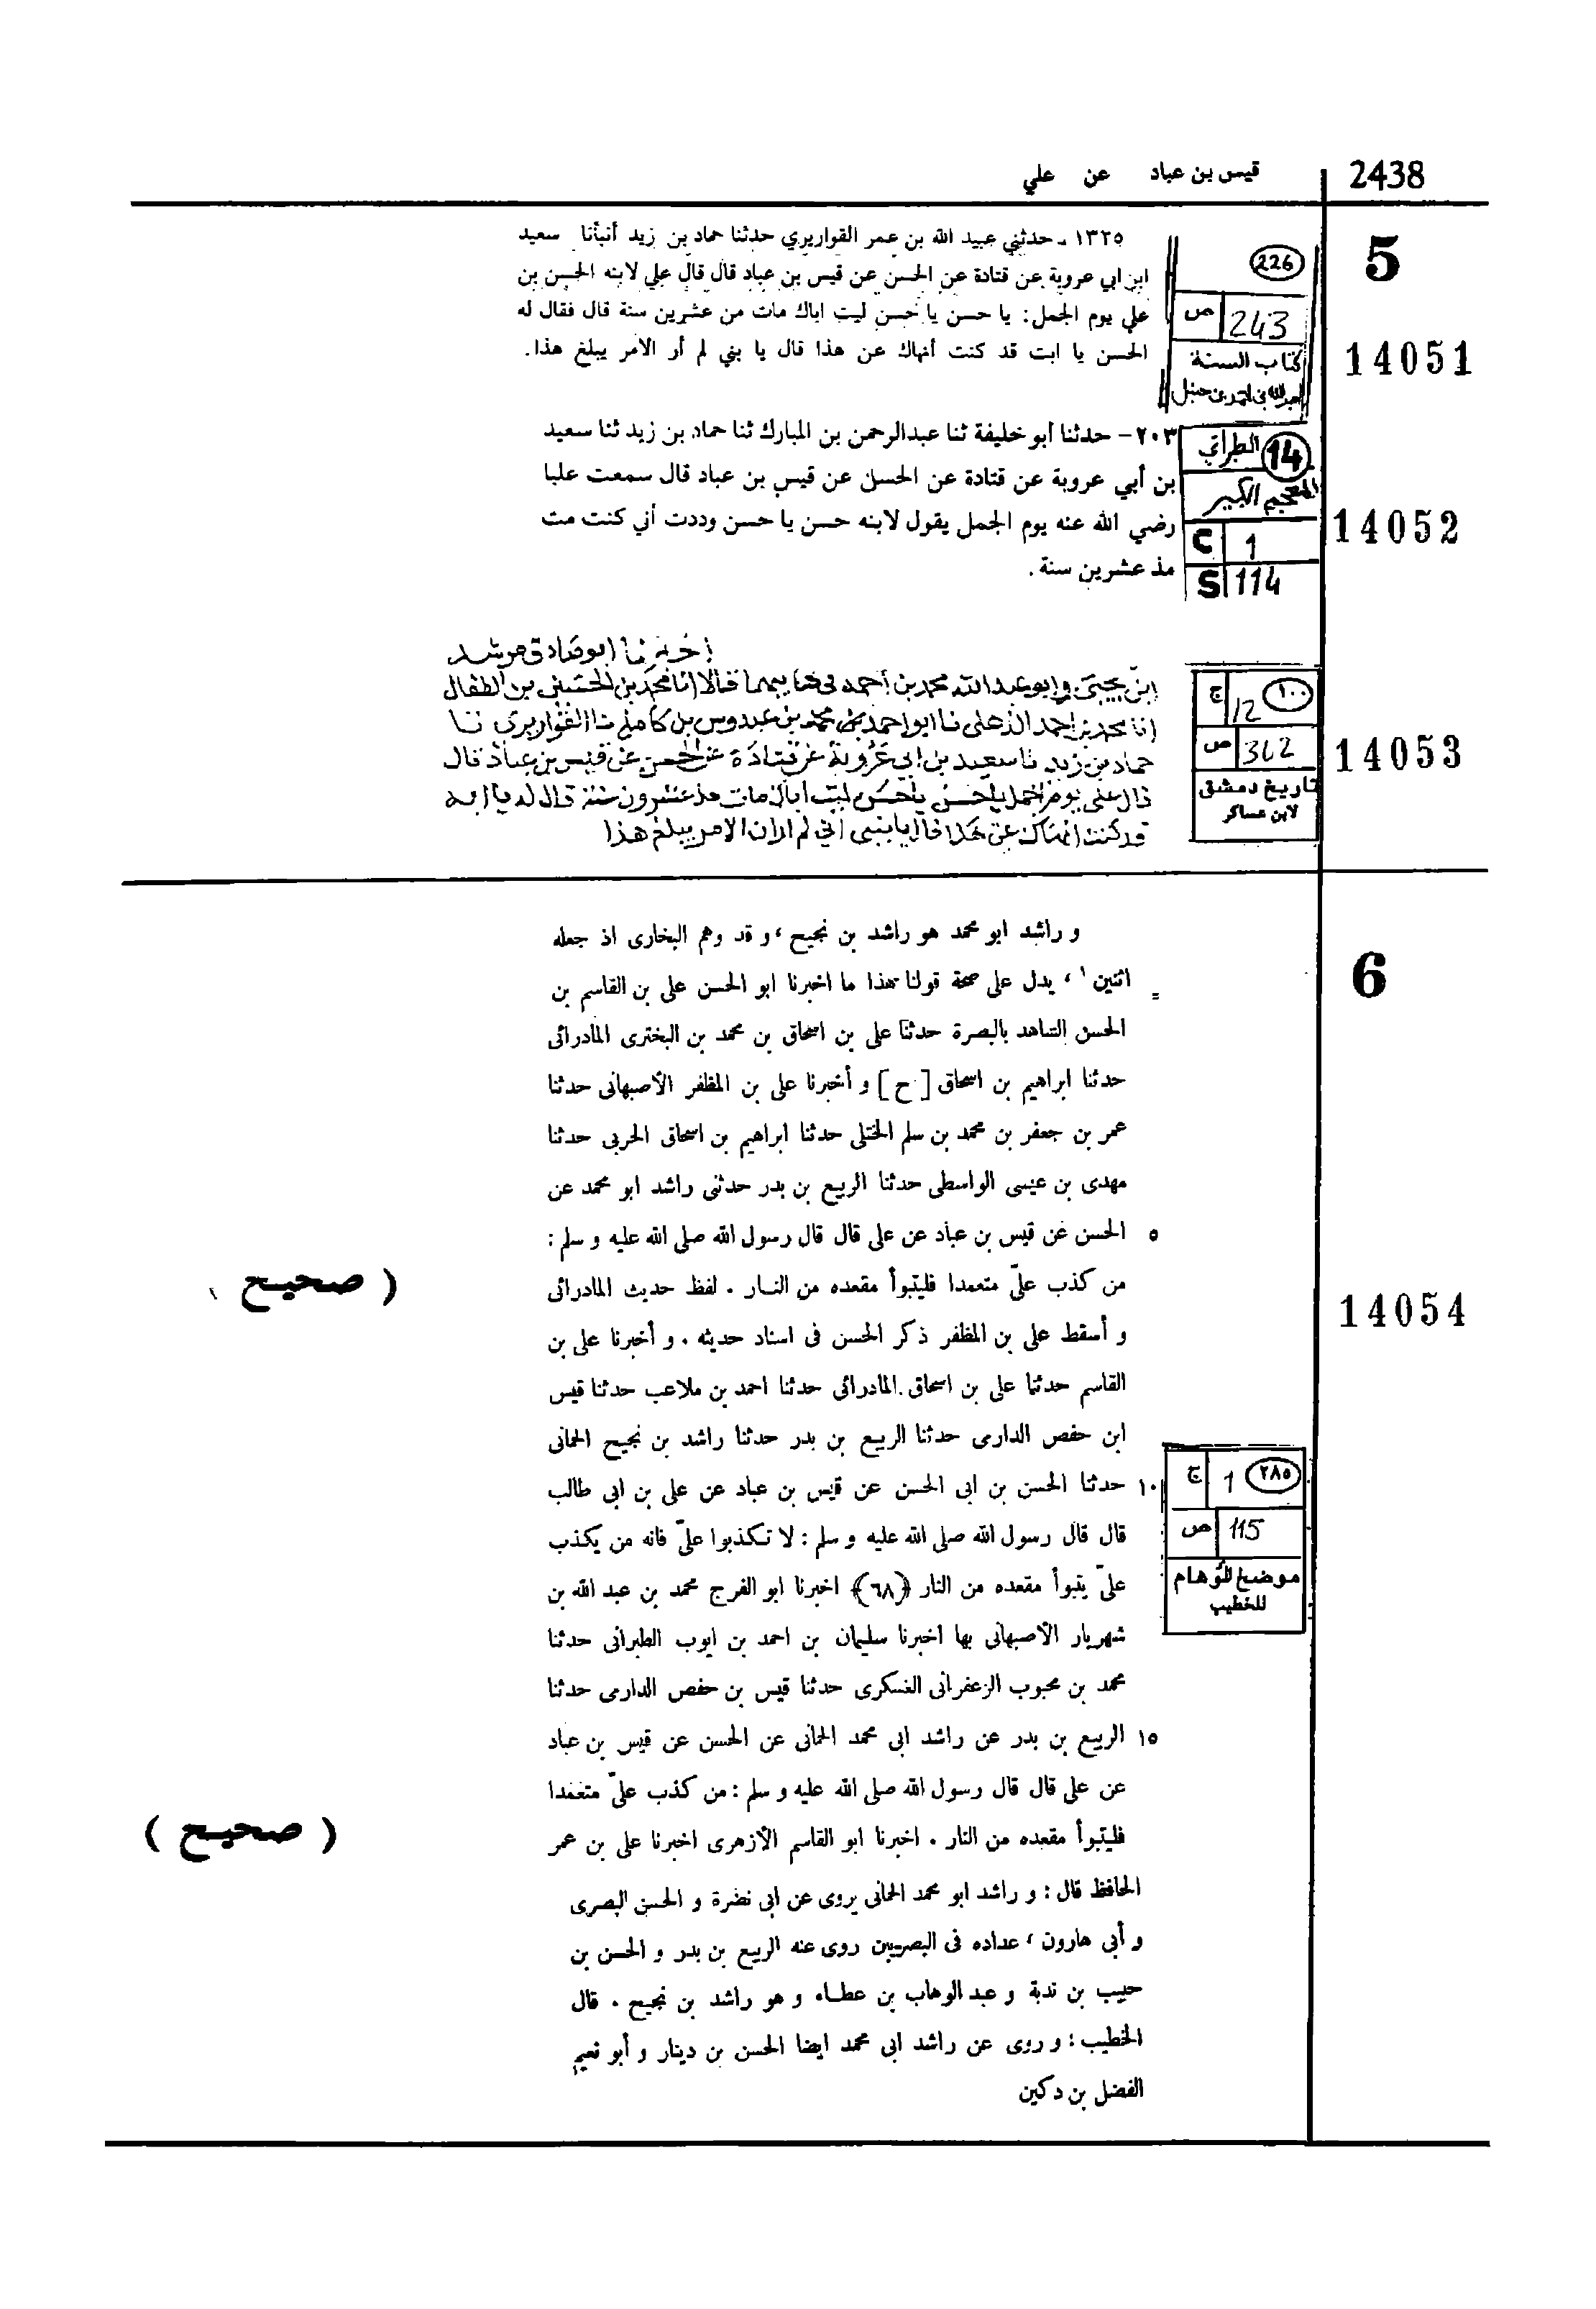 2438
قيس بن عباد عن علي
5
226
ص 243
كتاب السنة
لعبدالله بن احمد بن حنبل
14051
١٣٢٥ - حدثني عبيد الله بن عمر القواريري حدثنا حماد بن زيد أنبأنا سعيد
ابن ابي عروبة عن قتادة عن الحسن عن قيس بن عباد قال قال علي لابنه الحسن بن
علي يوم الجمل: يا حسن يا حسن ليت اباك مات من عشرين سنة قال فقال له
الحسن يا ابت قد كنت أنهاك عن هذا قال يا بني لم أر الأمر يبلغ هذا.
14
الطبراني
المعجم الكبير
C 1
S 114
14052
٢٠٣ - حدثنا أبو خليفة ثنا عبدالرحمن بن المبارك ثنا حماد بن زيد ثنا سعيد
بن أبي عروبة عن قتادة عن الحسن عن قيس بن عباد قال سمعت عليا
رضي الله عنه يوم الجمل يقول لابنه حسن يا حسن وددت أني كنت مت
مذ عشرين سنة.
١٠٠
ج 12
ص 362
تاريخ دمشق
لابن عساكر
14053
اخبرنا ابو صادق مرشد
ابن يحيى وابو عبد الله محمد بن أحمد في كتابيهما قالا انا محمد بن الحسين بن الطفال
انا محمد بن احمد الذهلي نا ابو احمد محمد بن عبدوس بن كامل نا القواريري نا
حماد بن زيد نا سعيد بن ابي عروبة عن قتادة عن الحسن عن قيس بن عباد قال
قال علي يوم الجمل يا حسن يا حسن ليت اباك مات مذ عشرون سنة قال له يا ابه
قد كنت انهاك عن هذا قال يا بني اني لم ار ان الامر يبلغ هذا
6
و راشد ابو محمد هو راشد بن نجيح ، و قد وهم البخارى اذ جعله
= اثنين ١ ، يدل على صحة قولنا هذا ما اخبرنا ابو الحسن على بن القاسم بن
الحسن الشاهد بالبصرة حدثنا على بن اسحاق بن محمد بن البخترى المادرائى
حدثنا ابراهيم بن اسحاق [ ح ] و أخبرنا على بن المظفر الأصبهانى حدثنا
عمر بن جعفر بن محمد بن سلم الختلى حدثنا ابراهيم بن اسحاق الحربى حدثنا
مهدى بن عيسى الواسطى حدثنا الربيع بن بدر حدثنى راشد ابو محمد عن
٥ الحسن عن قيس بن عباد عن على قال قال رسول الله صلى الله عليه و سلم :
من كذب علىّ متعمدا فليتبوأ مقعده من النار . لفظ حديث المادرائى
( صحيح
14054
و أسقط على بن المظفر ذكر الحسن فى اسناد حديثه . و أخبرنا على بن
القاسم حدثنا على بن اسحاق المادرائى حدثنا احمد بن ملاعب حدثنا قيس
ابن حفص الدارمى حدثنا الربيع بن بدر حدثنا راشد بن نجيح الحمانى
١٠ حدثنا الحسن بن ابى الحسن عن قيس بن عباد عن على بن ابى طالب
قال قال رسول الله صلى الله عليه و سلم : لا تكذبوا علىّ فانه من يكذب
علىّ يتبوأ مقعده من النار (٦٨) اخبرنا ابو الفرج محمد بن عبد الله بن
شهريار الأصبهانى بها اخبرنا سليمان بن احمد بن ايوب الطبرانى حدثنا
محمد بن محبوب الزعفرانى العسكرى حدثنا قيس بن حفص الدارمى حدثنا
١٥ الربيع بن بدر عن راشد ابى محمد الحمانى عن الحسن عن قيس بن عباد
عن على قال قال رسول الله صلى الله عليه و سلم : من كذب علىّ متعمدا
فليتبوأ مقعده من النار . اخبرنا ابو القاسم الأزهرى اخبرنا على بن عمر
( صحيح )
الحافظ قال : و راشد ابو محمد الحمانى يروى عن ابى نضرة و الحسن البصرى
و أبى هارون ، عداده فى البصريين روى عنه الربيع بن بدر و الحسن بن
حبيب بن ندبة و عبد الوهاب بن عطاء و هو راشد بن نجيح . قال
الخطيب : و روى عن راشد ابى محمد ايضا الحسن بن دينار و أبو نعيم
الفضل بن دكين
٢٨٥
ج 1
ص 115
موضح الأوهام
للخطيب